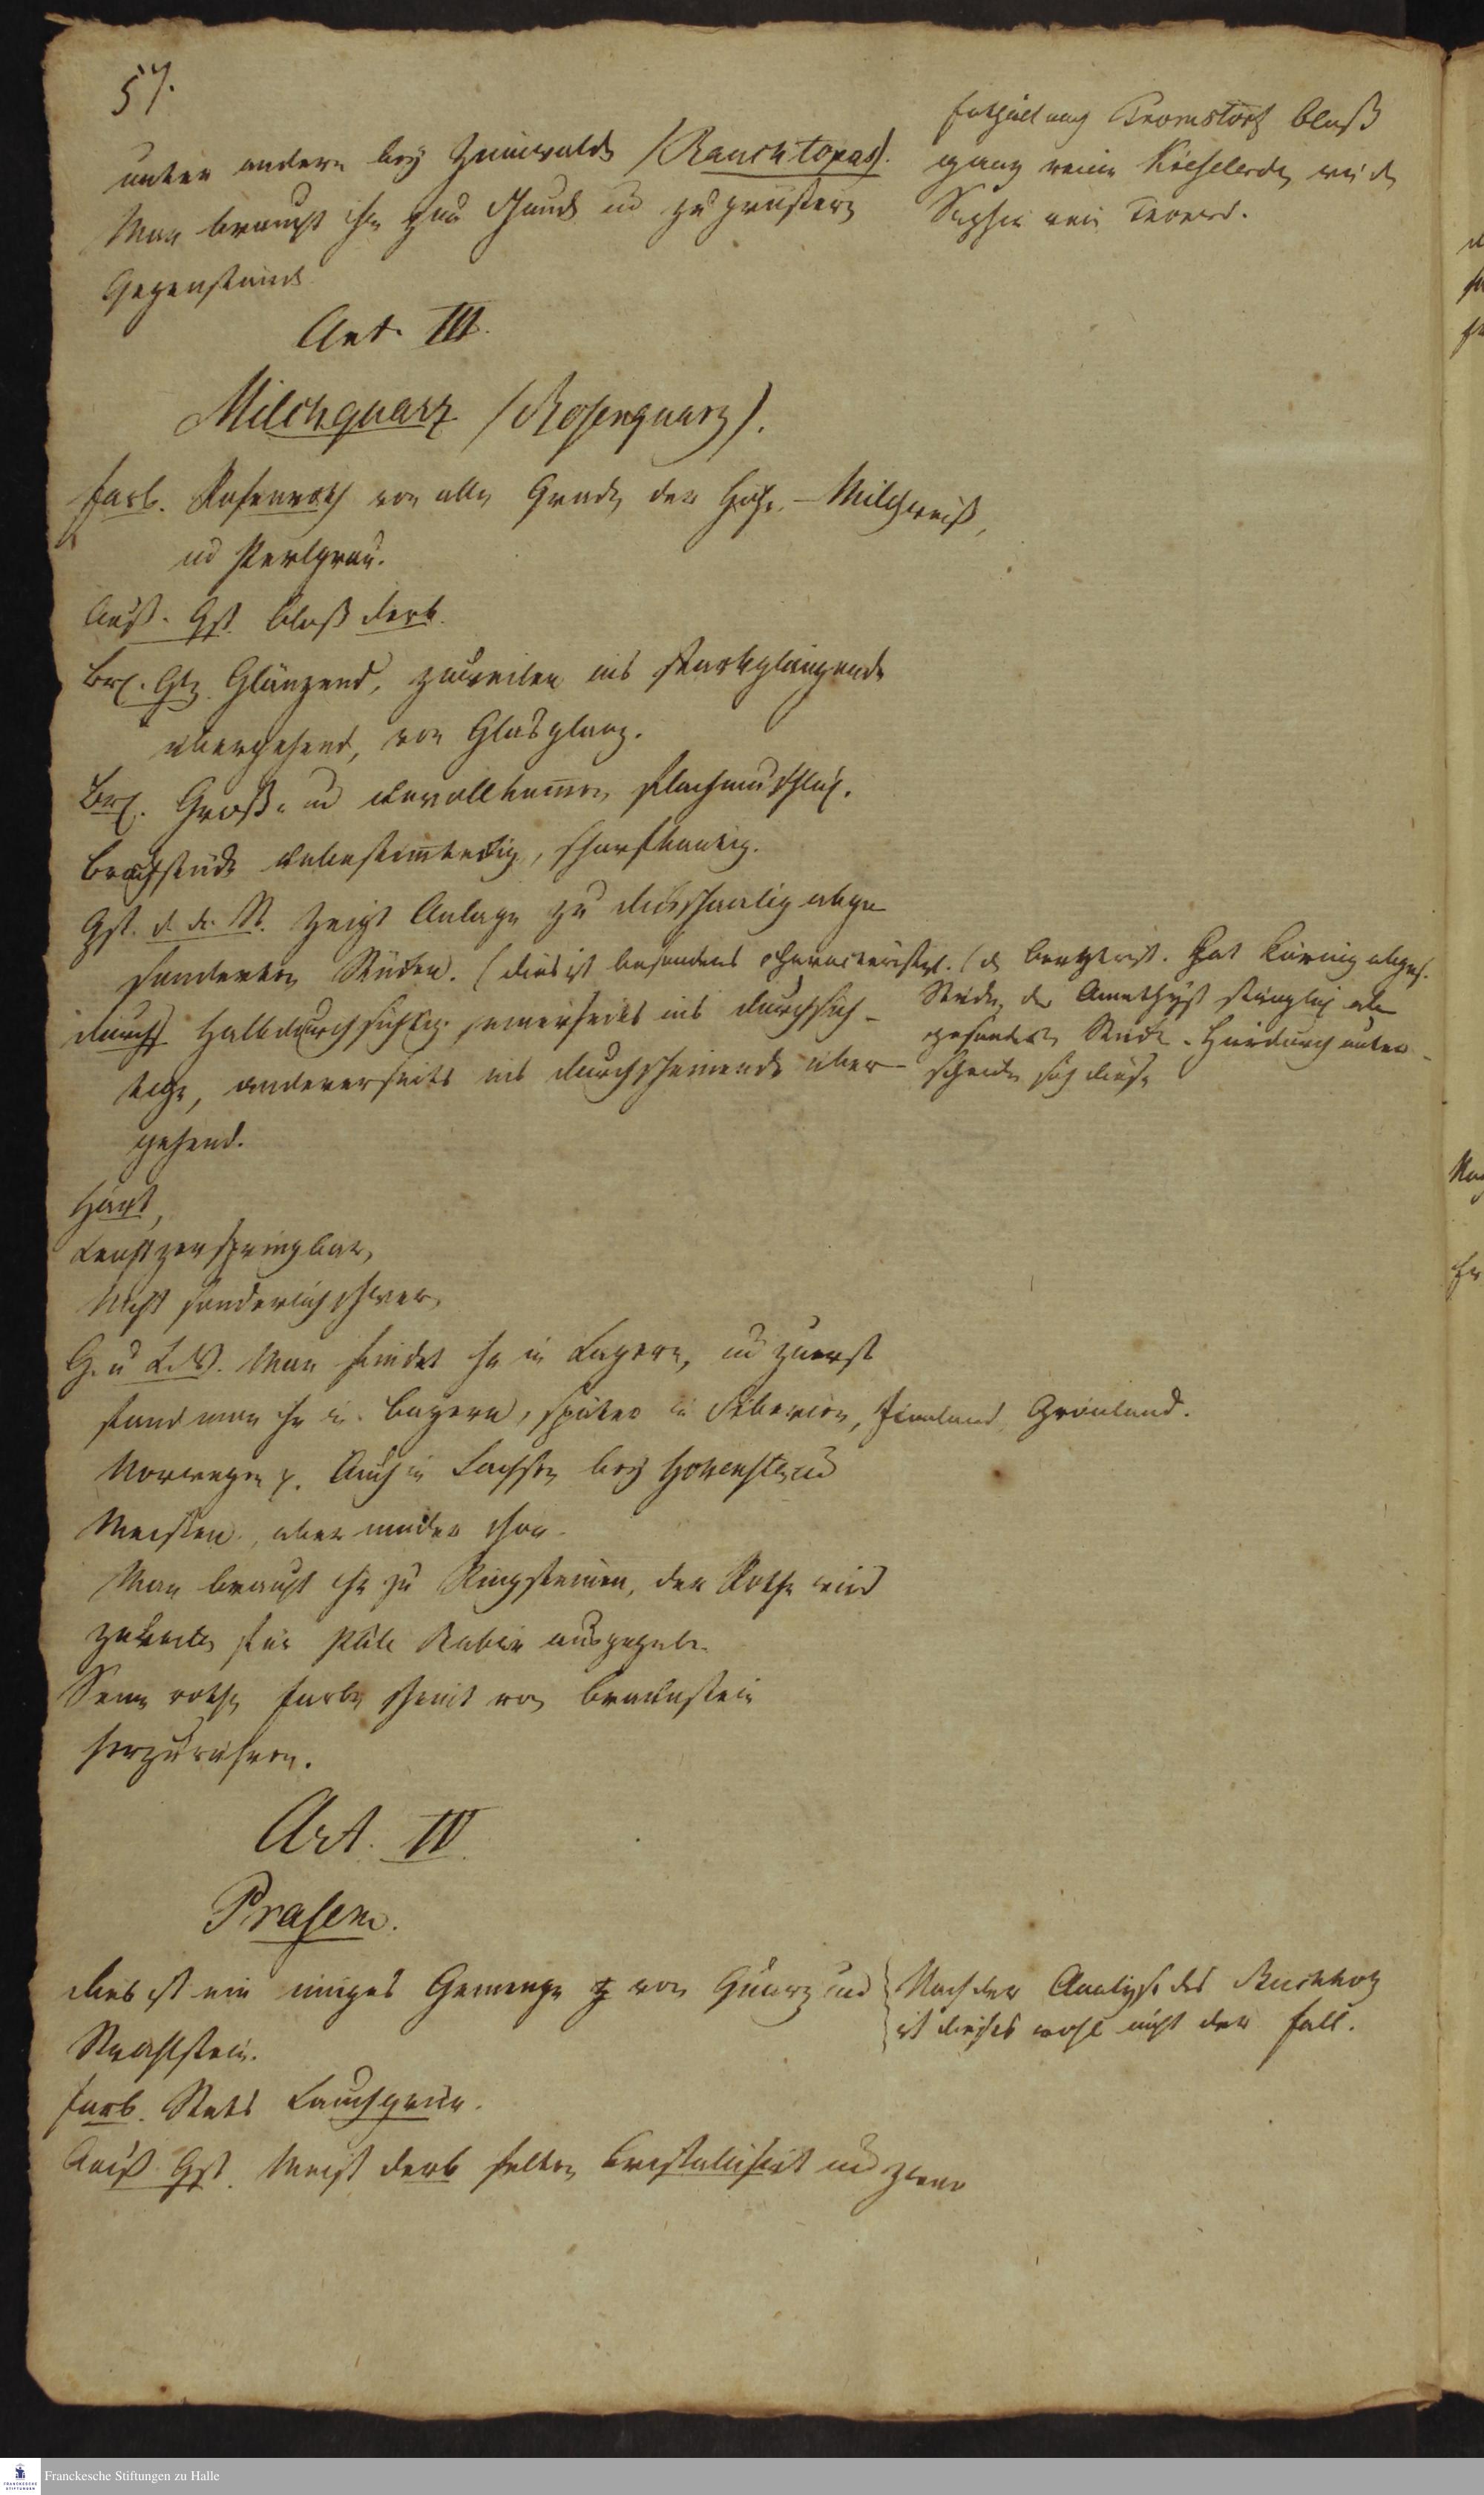 57.
unter andern bey Zinnwalde /Rauchtopas/.
Man braucht ihn zum Schmuck und zu größern
Gegenständ
Enthält nach Tromsdorf bloß
ganz reine Kieselerde, wie der
Saphir rein Thonerd.
Art. III.
Milchquarz /Rosenquarz/.
Farb. Rosenroth von allen Graden der Höhe, – Milchweiß,
und Perlgrau.
Äuß. Gst. bloß derb.
Br. Glz. Glänzend, zuweilen ins starkglänzende
übergehend, von Glasglanz.
Br. Groß- und unvollkommen flachmuschlich.
Bruchstücke unbestimmteckig, scharfkantig.
Gst. d. St. Zeigt Anlage zu dickschaalig abge-
sonderten Stücken. (dies ist besonders characteristisch. (der Bergkrist. Hat körnig abges.
Stücke, der Amethyst stänglich ab-
gesonderte Stücke. Hierdurch unter-
scheiden sich diese
Durchs. Halbdurchsichtig, einerseits ins durchsich-
tige, andererseits ins durchscheinende über-
gehend.
Hart,
Leicht zerspringbar,
Nicht sonderlich schwer,
G. u L. V. Man findet ihn in Lagern, und zuerst
fand man ihn in Bayern, später in Siberien, Finnland, Grönland.
Norwegen p. Auch in Sachsen bey Hohenstein und
Meissen, aber minder schön.
Man braucht ihn zu Ringsteinen, der Rothe wird
zuweilen für Pâle Rubin ausgegeben.
Seine rothe Farbe scheint von Braunstein
herzurühren.
Art. IV
Prasem.
Dies ist ein inniges Gemenge von Quarz und
Strahlstein.
Nach der Analyse des Bucholz
ist dieses wohl nicht der Fall.
Farb. Stets Lauchgrün.
Äuß. Gst. Meist derb selten Cristallisirt und zwar
Franckesche Stiftungen zu Halle